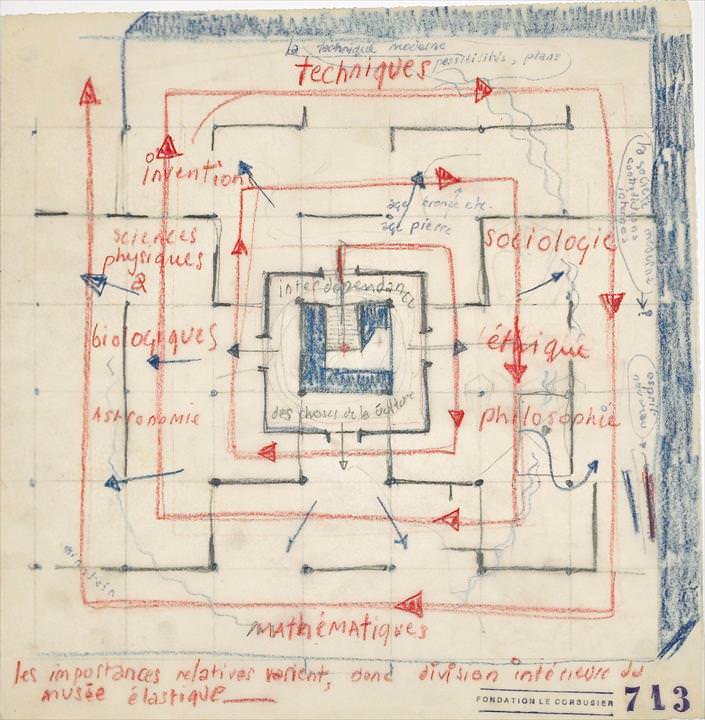 la technique moderne
possibilités, plans
techniques
invention
age bronze etc.
age pierre
sciences
physiques
&
sociologie
interdépendance
biologiques
éthique
des choses de la culture
Astronomie
philosophie
einstein
mAthéMAtiques
les importances relatives varient, donc division intérieure du
musée élastique
FONDATION LE CORBUSIER 713